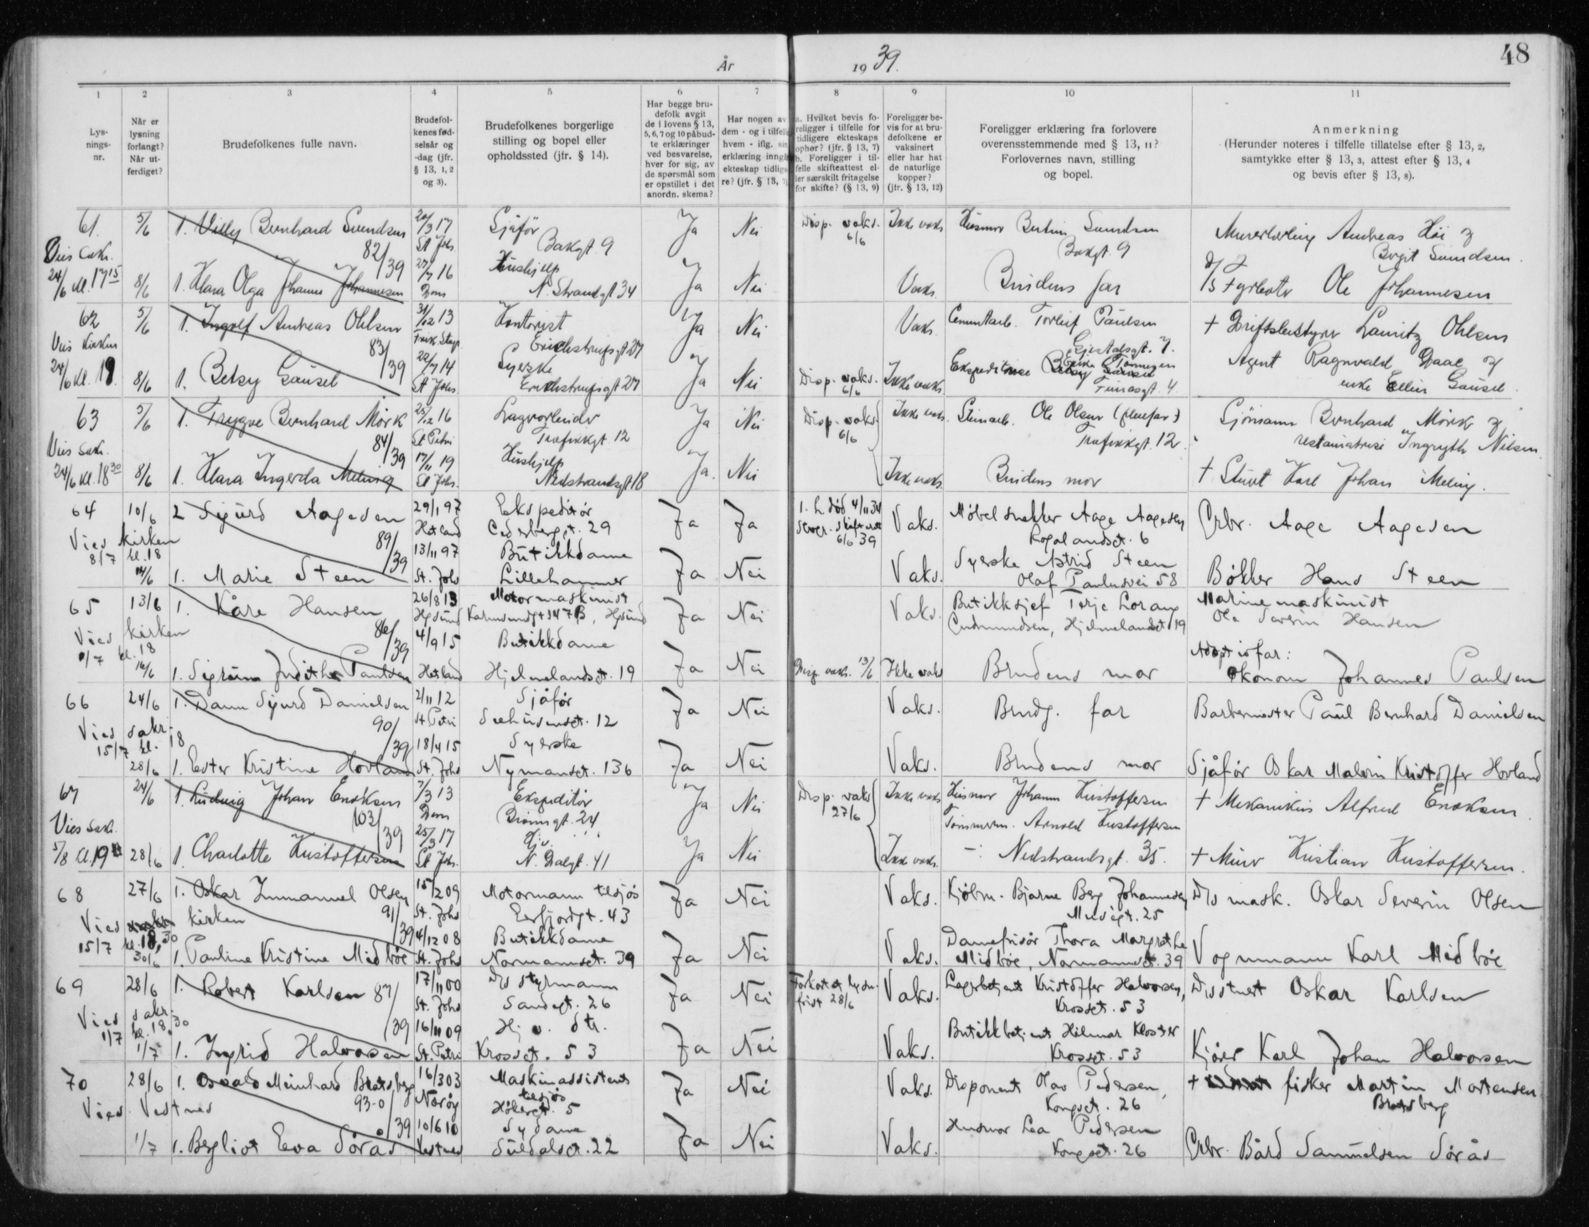 48
År 1939.
1 2 3 4 5 6 7 8 9 10 11
Lys-
nings-
nr.
Når er
lysning
forlangt?
Når ut-
ferdiget?
Brudefolkenes fulle navn.
Brudefol-
kenes fød-
selsår og
-dag (jfr.
§ 13, 1, 2
og 3).
Brudefolkenes borgerlige
stilling og bopel eller
opholdssted (jfr. § 14).
Har begge bru-
defolk avgit
de i lovens § 13,
5, 6, 7 og 10 påbud-
te erklæringer
ved besvarelse,
hver for sig, av
de spørsmål som
er opstillet i det
anordn. skema?
Har nogen av
dem - og i tilfelle
hvem - iflg. sin
erklæring inngått
ekteskap tidlige-
re? (jfr. § 13, 7)
a. Hvilket bevis fo-
religger i tilfelle for
tidligere ekteskaps
ophør? (jfr. § 13, 7)
b. Foreligger i til-
felle skifteattest el-
ler særskilt fritagelse
for skifte? (§ 13, 9)
Foreligger be-
vis for at bru-
defolkene er
vaksinert
eller har hat
de naturlige
kopper?
(jfr. § 13, 12)
Foreligger erklæring fra forlovere
overensstemmende med § 13, 11?
Forlovernes navn, stilling
og bopel.
Anmerkning
(Herunder noteres i tilfelle tillatelse efter § 13, 2,
samtykke efter § 13, 3, attest efter § 13, 4
og bevis efter § 13, 8).
61. 5/6 1. Willy Bernhard Svendsen 17 Sjåfør Ja Nei Disp. vaks. 6/6 Ikke vaks. Svendsen Andreas
82/39 St. Johs. Bakgt 9 Bakgt 9 Birgit Svendsen
Vies sakr.
24/6 kl. 17 15 8/6 1. Klara Olga Johanne Johannesen 16 Hushjelp Ja Nei Vaks. Brudens far Fyrbøter Ole Johannesen
Dom N. Strandgt 34
62 5/6 1. Ingolf Andreas Ohlsen 31/12 13 Kontorist Ja Nei Vaks. Torleif Paulsen + Driftsbestyrer Lauritz Ohlsen
Vies kirken 83/39
24/6 kl. 19. 8/6 1. Betsy Gausel 14 Syerske Ja Nei Disp. vaks. 6/6 Ikke vaks. Agent Ragnvald Daae og
St. Johs. enke Ellen Gausel.
63 5/6 1. Trygve Bernhard Mørk 16 Lagerarbeider Ja Nei Disp. vaks. 6/6 Ikke vaks. Stenarb. Ole Olsen Sjømann Bernhard Mørk og
84/39 St. Petri Trafikkgt. 12 Trafikkgt. 12. Nilsen.
Vies sakr.
24/6 kl. 18 30 8/6 1. Klara Ingerda Meling 17/11 19 Hushjelp Ja. Nei Ikke vaks. Brudens mor + Karl Johan Meling.
St. Johs. Nedstrandsgt 18
64 10/6 2 Sigurd Aagesen 29/1 97 Ekspeditør Ja Ja 1. h. død 4/11 34 Vaks. Møbelsnekker Aage Aagesen Grbr. Aage Aagesen
89/39 Hetland Cederbergsgt. 29 6/6 39 Rogalandsgt. 6
Vies kirken
8/7 kl. 18
14/6 1. Marie Steen 13/11 97 Butikkdame Ja Nei Vaks. Syerske Astrid Steen Bøkker Hans Steen
St. Johs Lillehammer Olaf Paulusvei 58
65 13/6 1. Kåre Hansen 26/8 13 Motormaskinist Ja Nei Vaks. Butikksjef Terje Lorang Marinemaskinist
86/39 Hgsund Gudmundsen, Hjelmelandsgt 19 Ole Severin Hansen
Vies kirken
kl. 18
16/6 1. Sigrunn Judithe Paulsen 4/9 15 Butikkdame Ja Nei Disp. vaks. 13/6 Ikke vaks Brudens mor Adoptivfar:
Hetland Hjelmelandsgt. 19 Økonom Johannes Paulsen
66 24/6 1. Dann Sigurd Danielsen 2/11 12 Sjåfør Ja Nei Vaks. Brudg. far Barbermester Paul Bernhard Danielsen
90/39 St Petri Seehusensgt. 12
Vies sakr.
15/7 kl. 18
28/6 1. Ester Kristine Hovland 18/4 15 Syerske Ja Nei Vaks. Brudens mor Sjåfør Oskar Malvin Kristoffer Hovland
St. Johs Nymansgt. 136
67 24/6 1. Ludvig Johan Enoksen 7/3 13 Ekspeditør Ja Nei Disp. vaks 27/6 Ikke vaks Husmor Johanne Kristoffersen + Mekanikus Alfred Enoksen.
103/39 Dom gt. 24 Tømmerm. Arnold Kristoffersen
Vies sakr.
5/8 kl. 19 28/6 1. Charlotte Kristoffersen 25/3 17 Hjv. Ja Nei Ikke vaks. Nedstrandsgt. 35. + Murer Kristian Kristoffersen.
St. Johs. N. Dalgt. 41
68 27/6 1. Oskar Immanuel Olsen 15/2 09 Motormann tilsjøs Ja Nei Vaks. Kjøbm. Bjarne Berg Johannessen D/s mask. Oskar Severin Olsen
91/39 St. Johs Erfjordgt. 43 Muségt. 25
Vies kirken
15/7 kl. 18,30
30/6 1. Pauline Kristine Midbøe 4/12 08 Butikkdame Ja Nei Vaks. Damefrisør Thora Margrethe Vognmann Karl Midbøe
St. Johs Normannsgt. 39 Midbøe, Normannsgt. 39
69 28/6 1. Robert Karlsen 87/39 17/11 00 D/s styrmann Ja Nei Forkortet lysn- frist 28/6 Vaks. Lagerbetjent Kristoffer Halvorsen, D/s stuert Oskar Karlsen
St. Johs Sandsgt. 26 Krossgt. 53
Vies sakr.
1/7 kl. 18,30
1/7 1. Ingrid Halvorsen 16/11 09 Hj. v. dtr. Ja Nei Vaks. Butikkbetjent Hilmar Kloster Kjører Karl Johan Halvorsen
St. Petri Krossgt. 53 Krossgt. 53
70 28/6 1. Osvald Meinhard Bratsberg 16/3 03 Maskinassistent Ja Nei Vaks. Disponent Olav Pedersen, + fisker Martin Mortensen
93-0/39 Nærøy tilsjøs Kongsgt. 26 Bratsberg
Vies Vestnes Høleregt. 5
1/7 1. Bergliot Eva Sørås 10/6 10 Sydame Ja Nei Vaks. Husmor Lea Pedersen Grbr. Bård Samuelsen Sørås
Vestnes Suldalsgt. 22 Kongsgt. 26